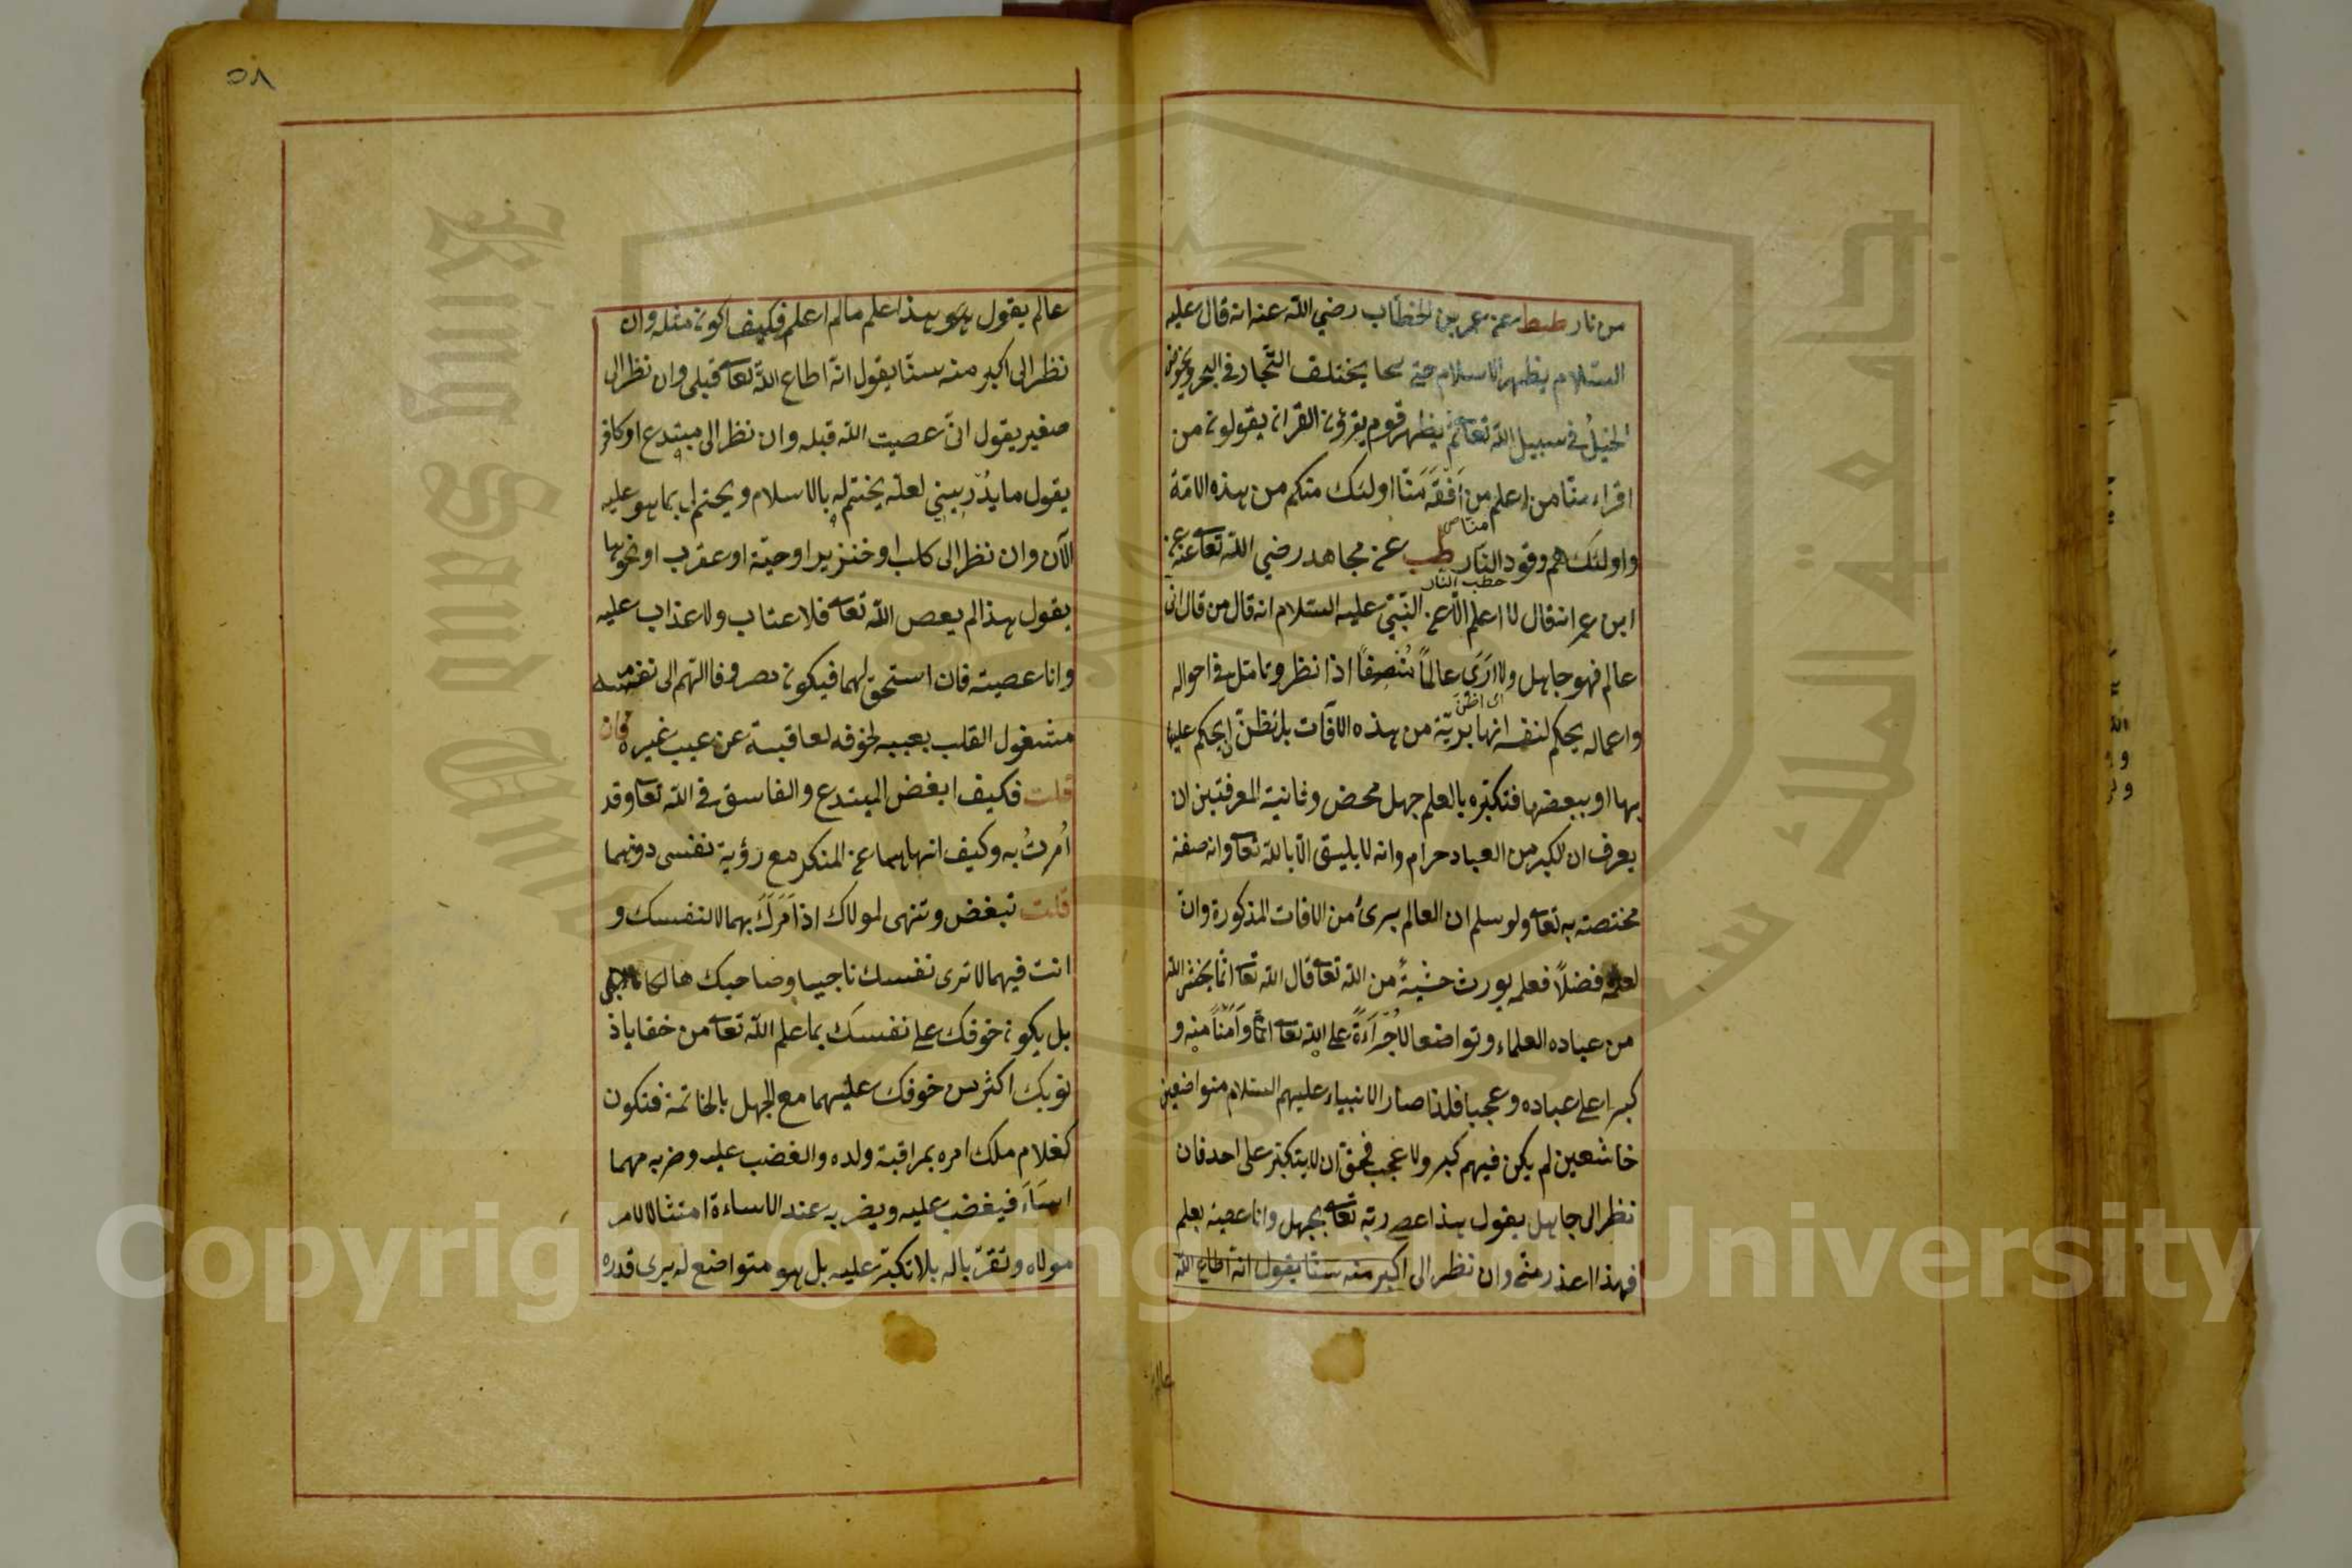 من نار طط عن عمر بن الخطاب رضي الله عنه انه قال عليه
السلام يظهر الاسلام حتى يختلف التجار في البحر وتخوض
الخيل في سبيل الله تعا ثم يظهر قوم يقرؤن القران يقولون من
اقراء منا من اعلم من اَفْقَهُ مَنّا اولئك منكم من هذه الامة
منا صح
واولئك هم وقود النار طب عن مجاهد رضي الله تعا عنه عن
حطب النار
ابن عمر انه قال لا اعلم الا عن النبي عليه السلام انه قال من قال اني
عالم فهو جاهل ولا ارَى عالماً مُنْصِفاً اذا نظر وتامل في احواله
اى اظن
واعماله يحكم لنفسه انها بريّة من هذه الآفات بل تظن ان يحكم عليها
بها او ببعضها فتكبّره بالعلم جهل محض وثانية المعرفتين ان
يعرف ان الكبر من العباد حرام وانه لا يليق الا بالله تعا وانه صفة
مختصة به تعا ولو سلم ان العالم برئ من الافات المذكورة وان
لعلمه فضلاً فعلمه يورث خشيةً من الله تعا قال الله تعا انما يخشى الله
من عباده العلماء وتواضعا لا جُرْاَةً على الله تعا وَاَمْناً منه و
كبرا على عباده وعجبا فلذا صار الانبياء عليهم السلام متواضعين
خاشعين لم يكن فيهم كبر ولا عجب فحق ان لا يتكبر على احد فان
نظر الى جاهل يقول هذا عصى ربه تعا بجهل وانا عصيته بعلم
فهذا اعذر منى وان نظر الى اكبر منه سنا يقول انه اطاع الله
عالم
٥٨
عالم يقول هو هذا علم مالم اعلم فكيف اكون مثله وان
نظر الى اكبر منه سنا يقول انه اطاع الله تعا قبلى وان نظر الى
صغير يقول انى عصيت الله قبله وان نظر الى مبتدع او كافر
يقول ما يُدْريني لعله يختم له بالاسلام ويختم لى بما هو عليه
الآن وان نظر الى كلب او خنزير او حيّة او عقرب او نحوها
يقول هذا لم يعص الله تعا فلا عتاب ولا عذاب عليه
وانا عصيته فان استحق لهما فيكون مصروفا الهم الى نفسه
مشغول القلب بعيبه لخوفه لعاقبته عن عيب غيره فان
قلت فكيف ابغض المبتدع والفاسق في الله تعا وقد
اُمِرتُ به وكيف انهاهما عن المنكر مع رؤية نفسى دونهما
قلت تبغض وتنهى لمولاك اذا اَمَرَكَ بهما لا لنفسك و
انت فيهما لا ترى نفسك ناجيا وصاحبك هالكا
بل يكون خوفك على نفسك بما علم الله تعا من خفايا ذ
نوبك اكثر من خوفك عليهما مع الجهل بالخاتمة فتكون
كغلام ملك امره بمراقبة ولده والغضب عليه وضربه مهما
اساَءَ فيغضب عليه ويضربه عند الاساءة امتثالا لامر
مولاه وتقرّبا له بلا تكبّر عليه بل هو متواضع له يرى قدره